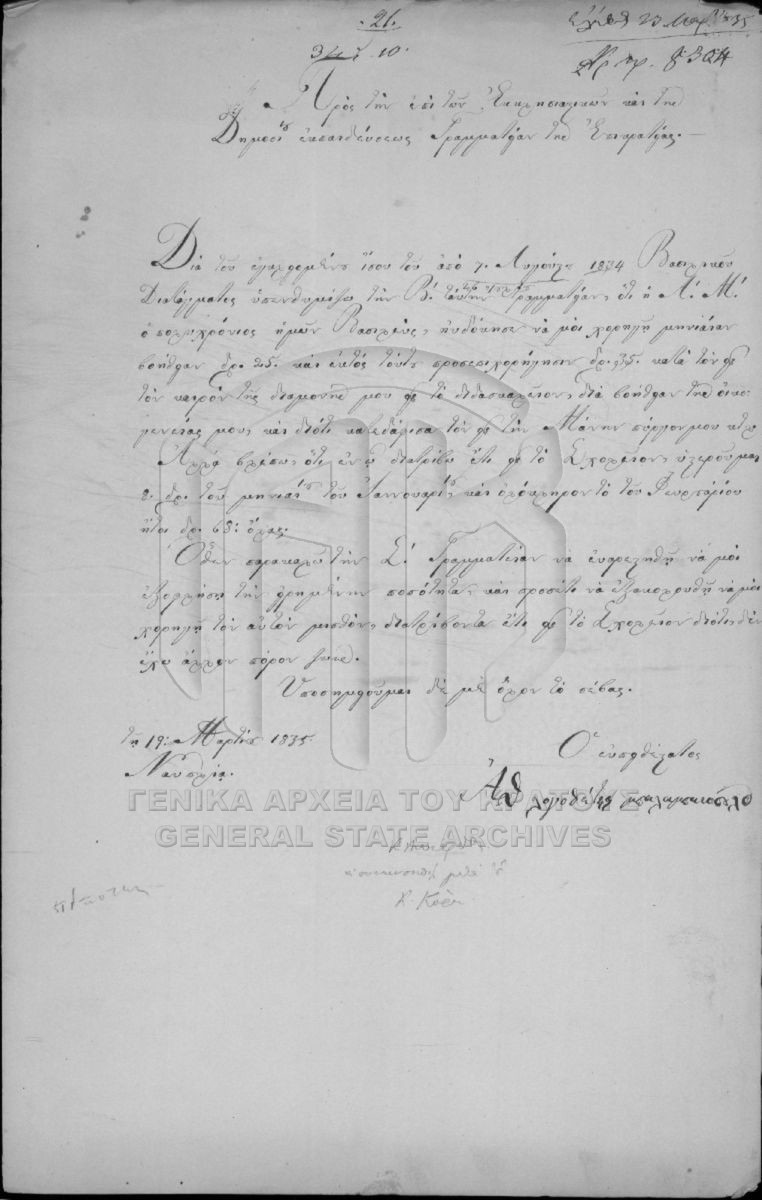 21.
ἐλήφθ 23 Μαρτίου 35
34 10.
Ἀρ. πρ. 8304
Πρὸς τὴν ἐπὶ τῶν Ἐκκλησιαστικῶν καὶ τῆς
Δημοσίου ἐκπαιδεύσεως Γραμματείαν τῆς Ἐπικρατείας.
Διὰ τοῦ ἐγκλειομένου ἴσου τοῦ ἀπὸ 7. Αὐγούστου 1834 Βασιλικοῦ
Διατάγματος ὑπενθυμίζω τὴν Β. ταύτην Γραμματείαν, ὅτι ἡ Α. Μ.
ὁ πολυχρόνιος ἡμῶν Βασιλεὺς, ηὐδόκησε νὰ μοὶ χορηγῇ μηνιαίαν
βοήθειαν δρ. 25. καὶ ἐκτὸς τούτου προσεπιχορήγησιν δρ. 35. κατὰ τὸν
τὸν καιρὸν τῆς διαμονῆς μου εἰς τὸ διδασκαλεῖον, διὰ βοήθειαν τῆς οἰκο-
γενείας μου, καὶ διότι κατεδάφισα τὸν εἰς τὴν Μάνην πύργον μου κτλ
Ἀλλὰ βλέπω, ὅτι ἐν ᾧ διατρίβω ἔτι εἰς τὸ Σχολεῖον, ὑστεροῦμαι
8. δρ. τοῦ μηνιαίου τοῦ Ἰαννουαρίου, καὶ ὁλόκληρον τὸ τοῦ Φευρουαρίου
ἤτοι δρ. 68: ὅλας.
Ὅθεν παρακαλῶ τὴν Σ. Γραμματείαν νὰ εὐαρεστηθῇ νὰ μοὶ
τὴν εἰρημένην ποσότητα, καὶ προσέτι νὰ ἐξακολουθῇ νὰ μοὶ
χορηγῇ τὸν αὐτὸν μισθὸν, διατρίβοντα ἔτι εἰς τὸ Σχολεῖον διότι δὲν
ἔχω ἄλλον πόρον ζωῆς.
Ὑποσημειοῦμαι δὲ μὲ ὅλον τὸ σέβας.
τῇ 19: Μαρτίου 1835.
Ναυπλίᾳ.
Ὁ εὐπειθέστατος
Ἀθ
ΓΕΝΙΚΑ ΑΡΧΕΙΑ ΤΟΥ ΚΡΑΤΟΥΣ
GENERAL STATE ARCHIVES
μετὰ τοῦ
Κ.